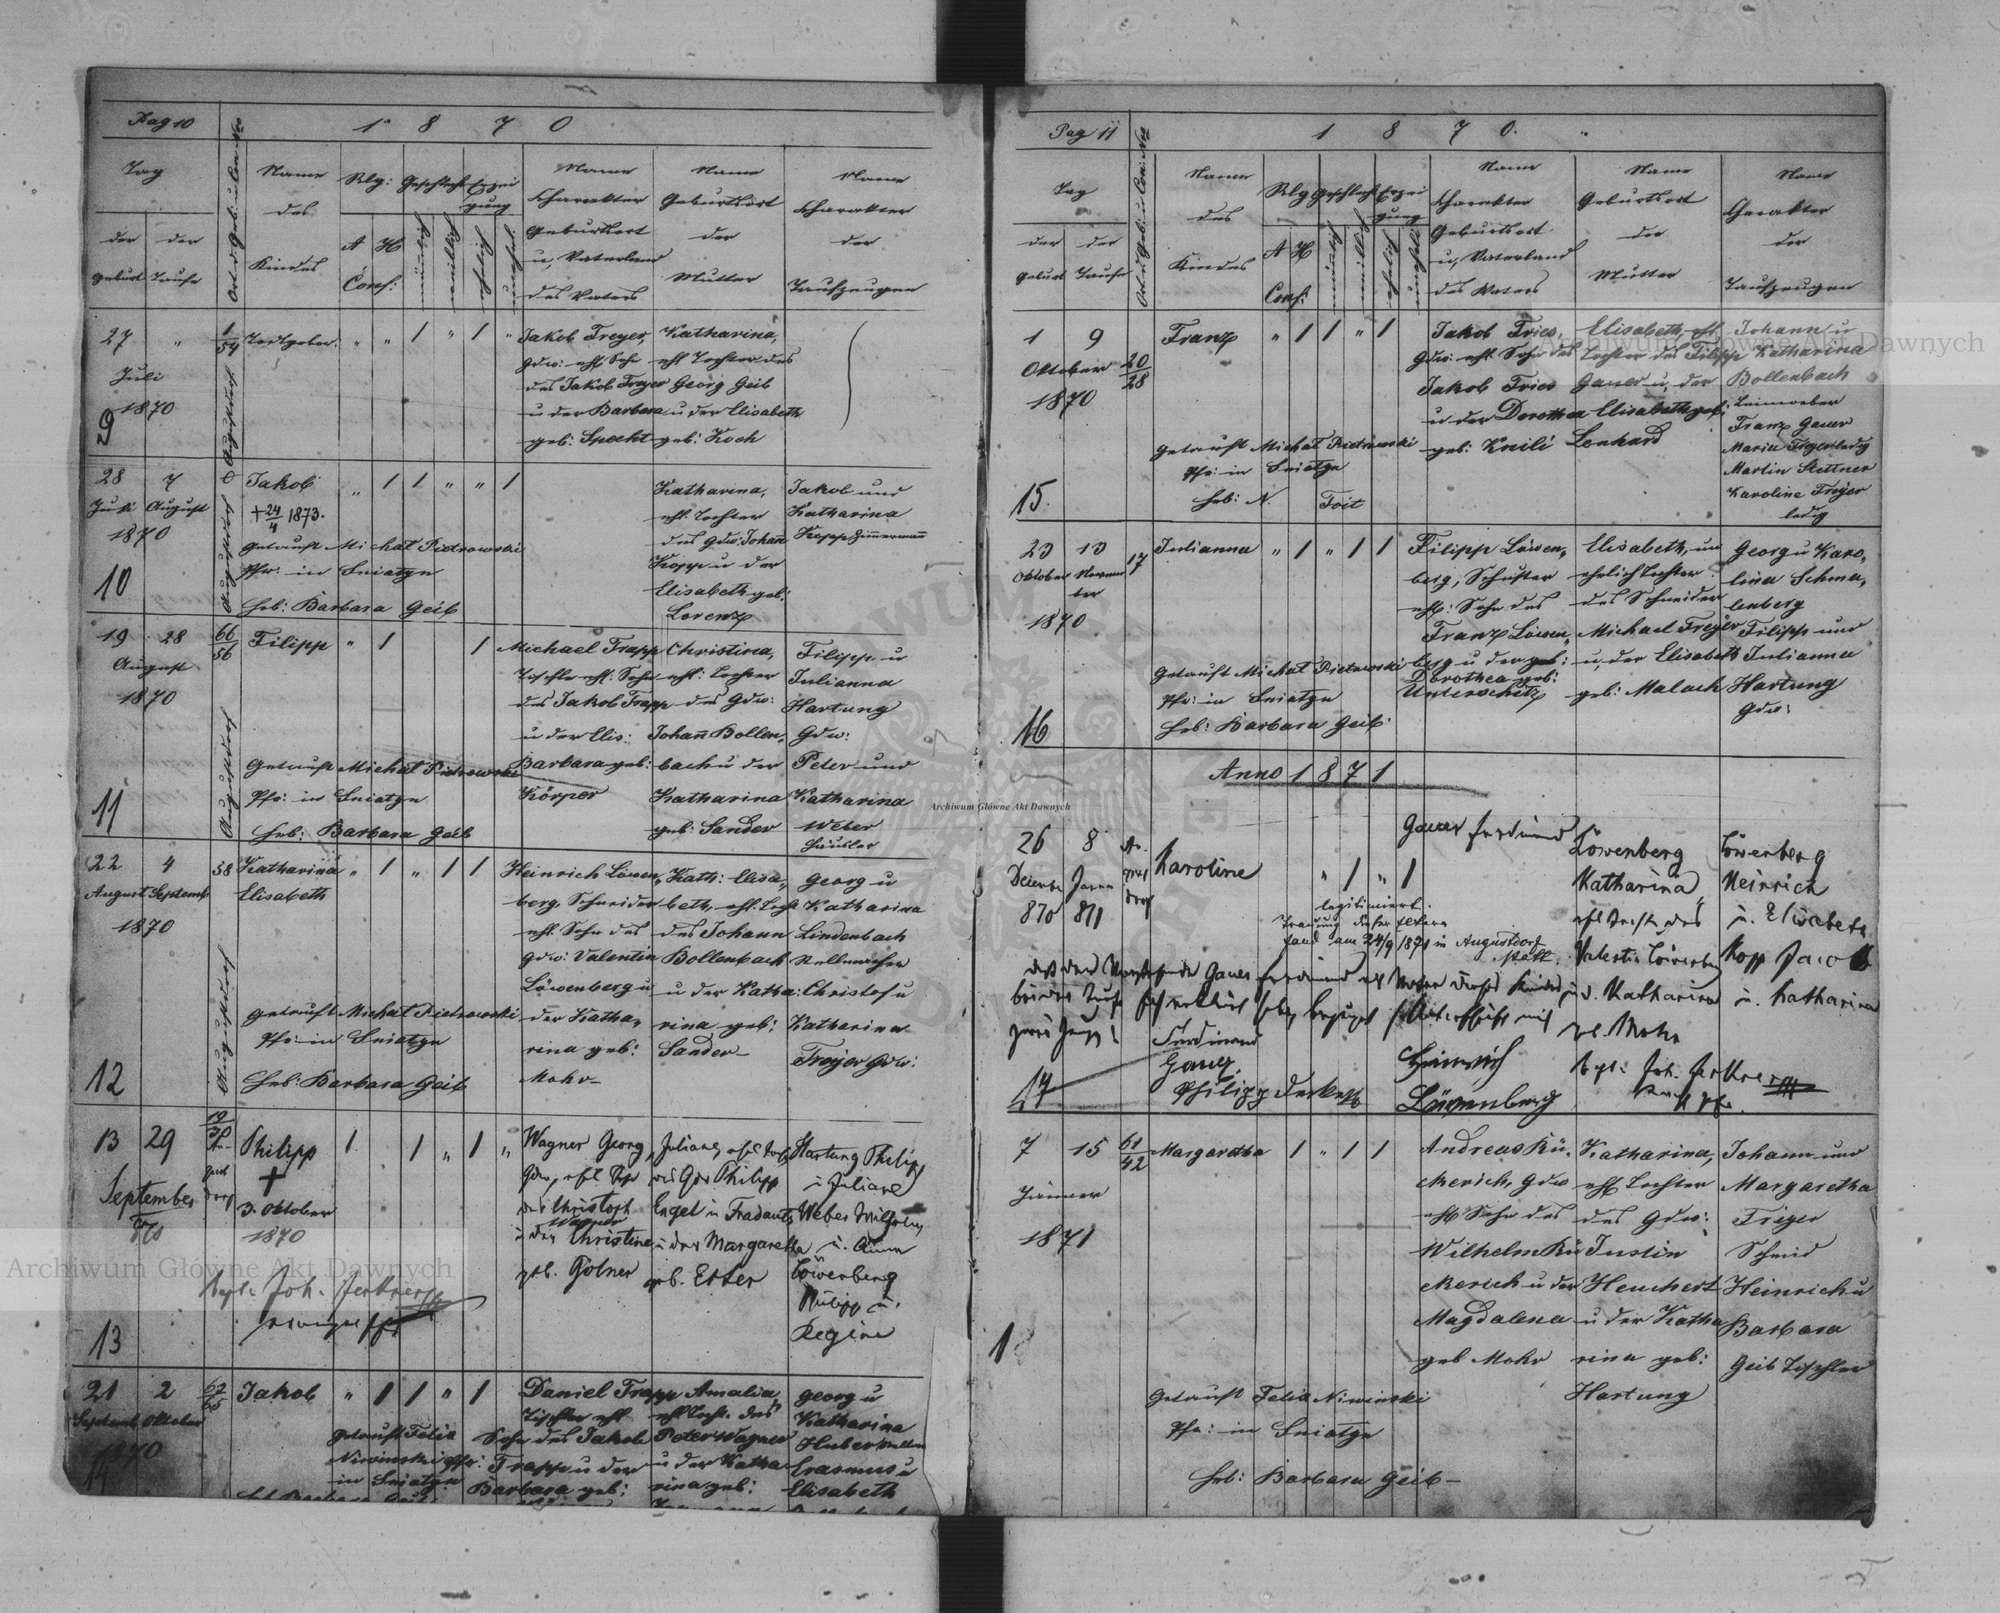 Pag 10
1 8 7 0
Tag
der der
Geburt Taufe
Name
des
Kindes
Relg: Geschlecht Erzeugung
A H
Conf:
männlich
weiblich
ehelich
unehel.
Name
Charakter
Geburtsort
u. Vaterland
des Vaters
Name
Geburtsort
der
Mutter
Name
Charakter
der
Taufzeugen
27 "
Juli
1870
9
1/54
Augustdorf
Todtgebor.
" " 1 " 1 "
Jakob Freyer,
Gdw: ehl. Sohn
des Jakob Freyer
u der Barbara
geb: Specht
Katharina,
ehl Tochter des
Georg Geib
u der Elisabeth
geb: Koch
28 7
Juli August
1870
10
Augustdorf
Jakob
+ 24/4 1873.
" 1 1 " " 1
Getauft Michal Pietrowski
Pfr: in Sniatyn
Heb: Barbara Geib
Katharina,
ehl. Tochter
des Gdw: Johann
Kopp u der
Elisabeth geb:
Lorenz
Jakob und
Katharina
Kopp Zimmermann
19 28
August
1870
11
66/56
Augustdorf
Filipp " 1 1
Getauft Michal Pietrowski
Pfr: in Sniatyn
Heb: Barbara Geib
Michael Trapp
Tischler ehl: Sohn
des Jakob Trapp
u der Elis:
Barbara geb:
Körper
Christina,
ehl: Tochter
des Gdw:
Johann Bollen,
bach u der
Katharina
geb: Sander
Filipp u
Julianna
Hartung
Gdw:
Peter und
Katharina
Weber
Häusler
22 4
August Septemb
1870
12
58
Augustdorf
Katharina
Elisabeth
" 1 " 1 1
Getauft Michal Pietrowski
Pfr: in Sniatyn
Heb: Barbara Geib
Heinrich Löwen,
berg, Schneider
ehl. Sohn des
Gdw: Valentin
Löwenberg u
der Katha,
rina geb:
Mohr
Kath: Elisa,
beth, ehl. Tocht
des Johann
Bollenbach
u der Katha,
rina geb:
Sander
Georg u
Katharina
Lindenbach
Christof u
Katharina
Freyer Gdw:
13 29
September
870
13
Philipp
+
3. Oktober
1870
1 1 " 1 "
Joh.
Wagner Georg,
Gdw, ehl Sohn
des Christoph
Wagner
u der Christine
geb. Golner
Juliane, ehl Toch
des Gdw Philipp
Engel in Fradautz
u der Margaretha
geb. Etter
Hartung Philipp
u Juliane
Weber Wilhelm,
u. Anna
Löwenberg
Philipp u.
Regine
21 2
Septemb Oktober
1870
14
Jakob " 1 1 " 1
Getauft Felix
Niwinski Pfr:
in Sniatyn
Daniel Trapp
Tischler ehl
Sohn des Jakob
Trapp u der
Barbara geb:
Amalia
ehl Tocht. des
Peter Wagner
u der Katha
rina geb:
Georg u
Katharina
Huber
Erasmus u
Elisabeth
Pag 11
1 8 7 0.
Tag
der der
Geburt Taufe
Name
des
Kindes
Relg Geschlecht Erzeugung
A H
Conf:
männlich
weiblich
ehelich
unehel:
Name
Charakter
Geburtsort
u, Vaterland
des Vaters
Name
Geburtsort
der
Mutter
Name
Charakter
der
Taufzeugen
1 9
Oktober
1870
15.
20/28
Franz " 1 1 " 1
Getauft Michal Pietrowski
Pfr: in Sniatyn
Heb: N. Toit
Jakob Fries,
Gdw: ehl. Sohn des
Jakob Fries
u der Dorothea
geb: Knili
Elisabeth, ehl
Tochter des Filipp
Gauer u, der
Elisabeth geb:
Lenhard
Johann u
Katharina
Bollenbach
Leinweber
Franz Gauer
Maria Freyer ledig
Martin Stettner
Karoline Freyer
ledig
23 13
Oktober Novem
ber
1870
16
17
Julianna " 1 " 1 1
Getauft Michal Pietrowski
Pfr: in Sniatyn
Heb: Barbara Geib:
Filipp Löwen,
berg, Schuster
ehl: Sohn des
Franz Löwen,
berg u der geb:
Dorothea geb:
Unterschütz
Elisabeth, un
ehelich Tochter
des Schneider
Michael Freyer
u, der Elisabeth
geb: Malach
Georg u Karo,
lina Schma,
lenberg
Filipp und
Julianna
Hartung
Gdw:
Anno 1871
26 8
Decembr Janu
870 871
17
Au
gust
dorf
Karoline " 1 " 1
legitimiert.
Trauung dieser Eltern
fand am 24/9 1871 in Augustdorf
statt.
Gauer Ferdinand
Löwenberg
Katharina,
ehl Tocht. des
Valentin Löwenberg
u d. Katharina
geb. Mohr
Löwenberg
Heinrich
u. Elisabeth
Kopp Jacob
u. Katharina
Ferdinand
Gauer.
Heinrich
Löwenberg
7 15
Jänner
1871
1
61/42
Margaretha 1 " 1 1
Getauft Felix Niwinski
Pfr: in Sniatyn
Heb: Barbara Geib
Andreas Kü,
merich, Gdw
ehl Sohn des
Wilhelm Kü
merich u der
Magdalena
geb Mohr
Katharina,
ehl Tochter
des Gdw:
Justin
Heuchert
u der Katha
rina geb:
Hartung
Johann und
Margaretha
Freyer
Schmid
Heinrich u
Barbara
Geib Tischler
Archiwum Główne Akt Dawnych
Archiwum Główne Akt Dawnych
Archiwum Główne Akt Dawnych